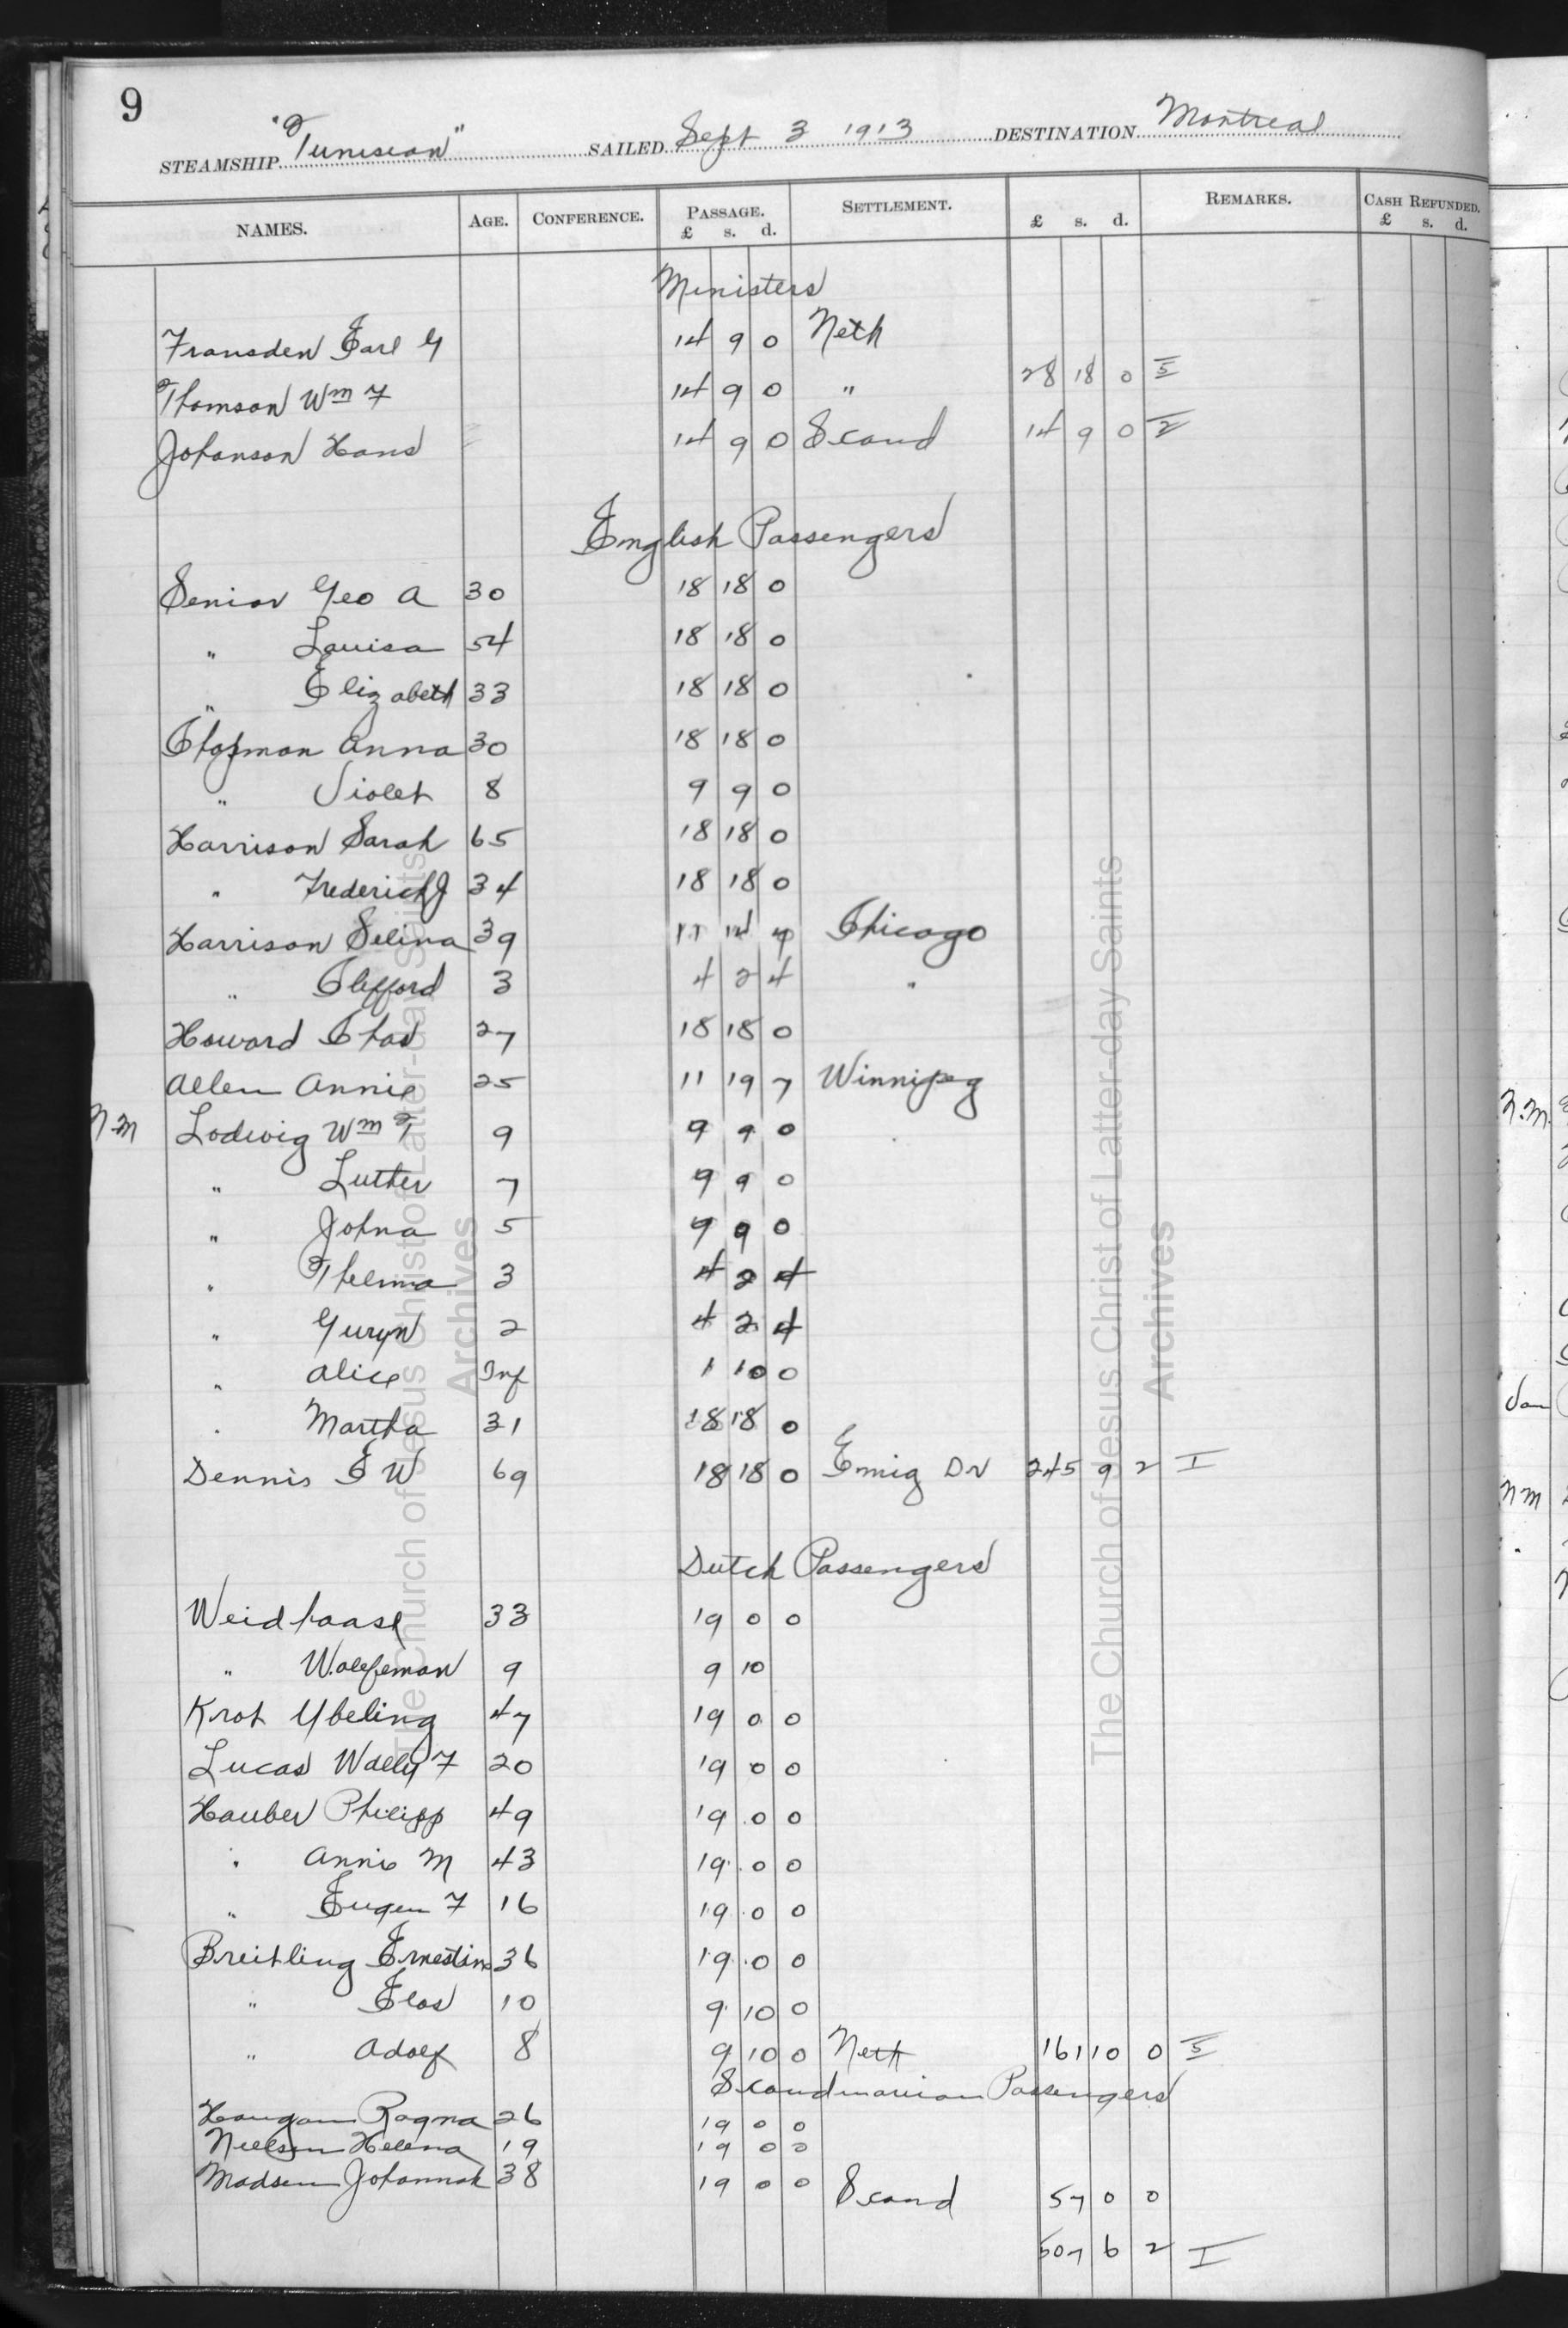 9
STEAMSHIP "Tunisian" SAILED Sept 3 1913 DESTINATION Montreal
NAMES. AGE. CONFERENCE. PASSAGE. £ s. d. SETTLEMENT. £ s. d. REMARKS. CASH REFUNDED. £ s. d.
Ministers
Fransden Earl G 14 9 0 Neth
Thomson Wm F 14 9 0 " 28 18 0
Johanson Hans 14 9 0 Scand 14 9 0
English Passengers
Senior Geo A 30 18 18 0
" Louisa 54 18 18 0
" Elizabeth 33 18 18 0
Chapman Anna 30 18 18 0
" Violet 8 9 9 0
Harrison Sarah 65 18 18 0
" Frederick J 34 18 18 0
Harrison Selina 39 11 14 Chicago
" Clifford 3 4 2 4 "
Howard Chas 27 18 18 0
Allen Annie 25 11 19 7 Winnipeg
N.M Lodwig Wm T 9 9 9 0
" Luther 7 9 9 0
" Johna 5 9 9 0
" Thelma 3 4 2 4
" Guryn 2 4 2 4
" Alice Inf 1 10 0
" Martha 31 18 18 0
Dennis E W 69 18 18 0 Emig Dr 245 9 2 I
Dutch Passengers
Weidhaase 33 19 0 0
" 9 9 10
Krot Ybeling 47 19 0 0
Lucas Wally F 20 19 0 0
Hauber Philipp 49 19 0 0
" Annie M 43 19 0 0
" Eugen F 16 19 0 0
Breitling Ernestine 36 19 0 0
" Elas 10 9 10 0
" Adolf 8 9 10 0 Neth 161 10 0
Scandinavian Passengers
Haugan Ragna 26 19 0 0
Nielsen Helena 19 19 0 0
Madsen Johannah 38 19 0 0
Scand 57 0 0
507 6 2 I
The Church of Jesus Christ of Latter-day Saints
Archives
The Church of Jesus Christ of Latter-day Saints
Archives